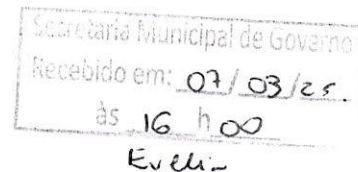 Secretaria Municipal de Governo
Recebido em: 07/03/25.
às 16 h 00
Evelin